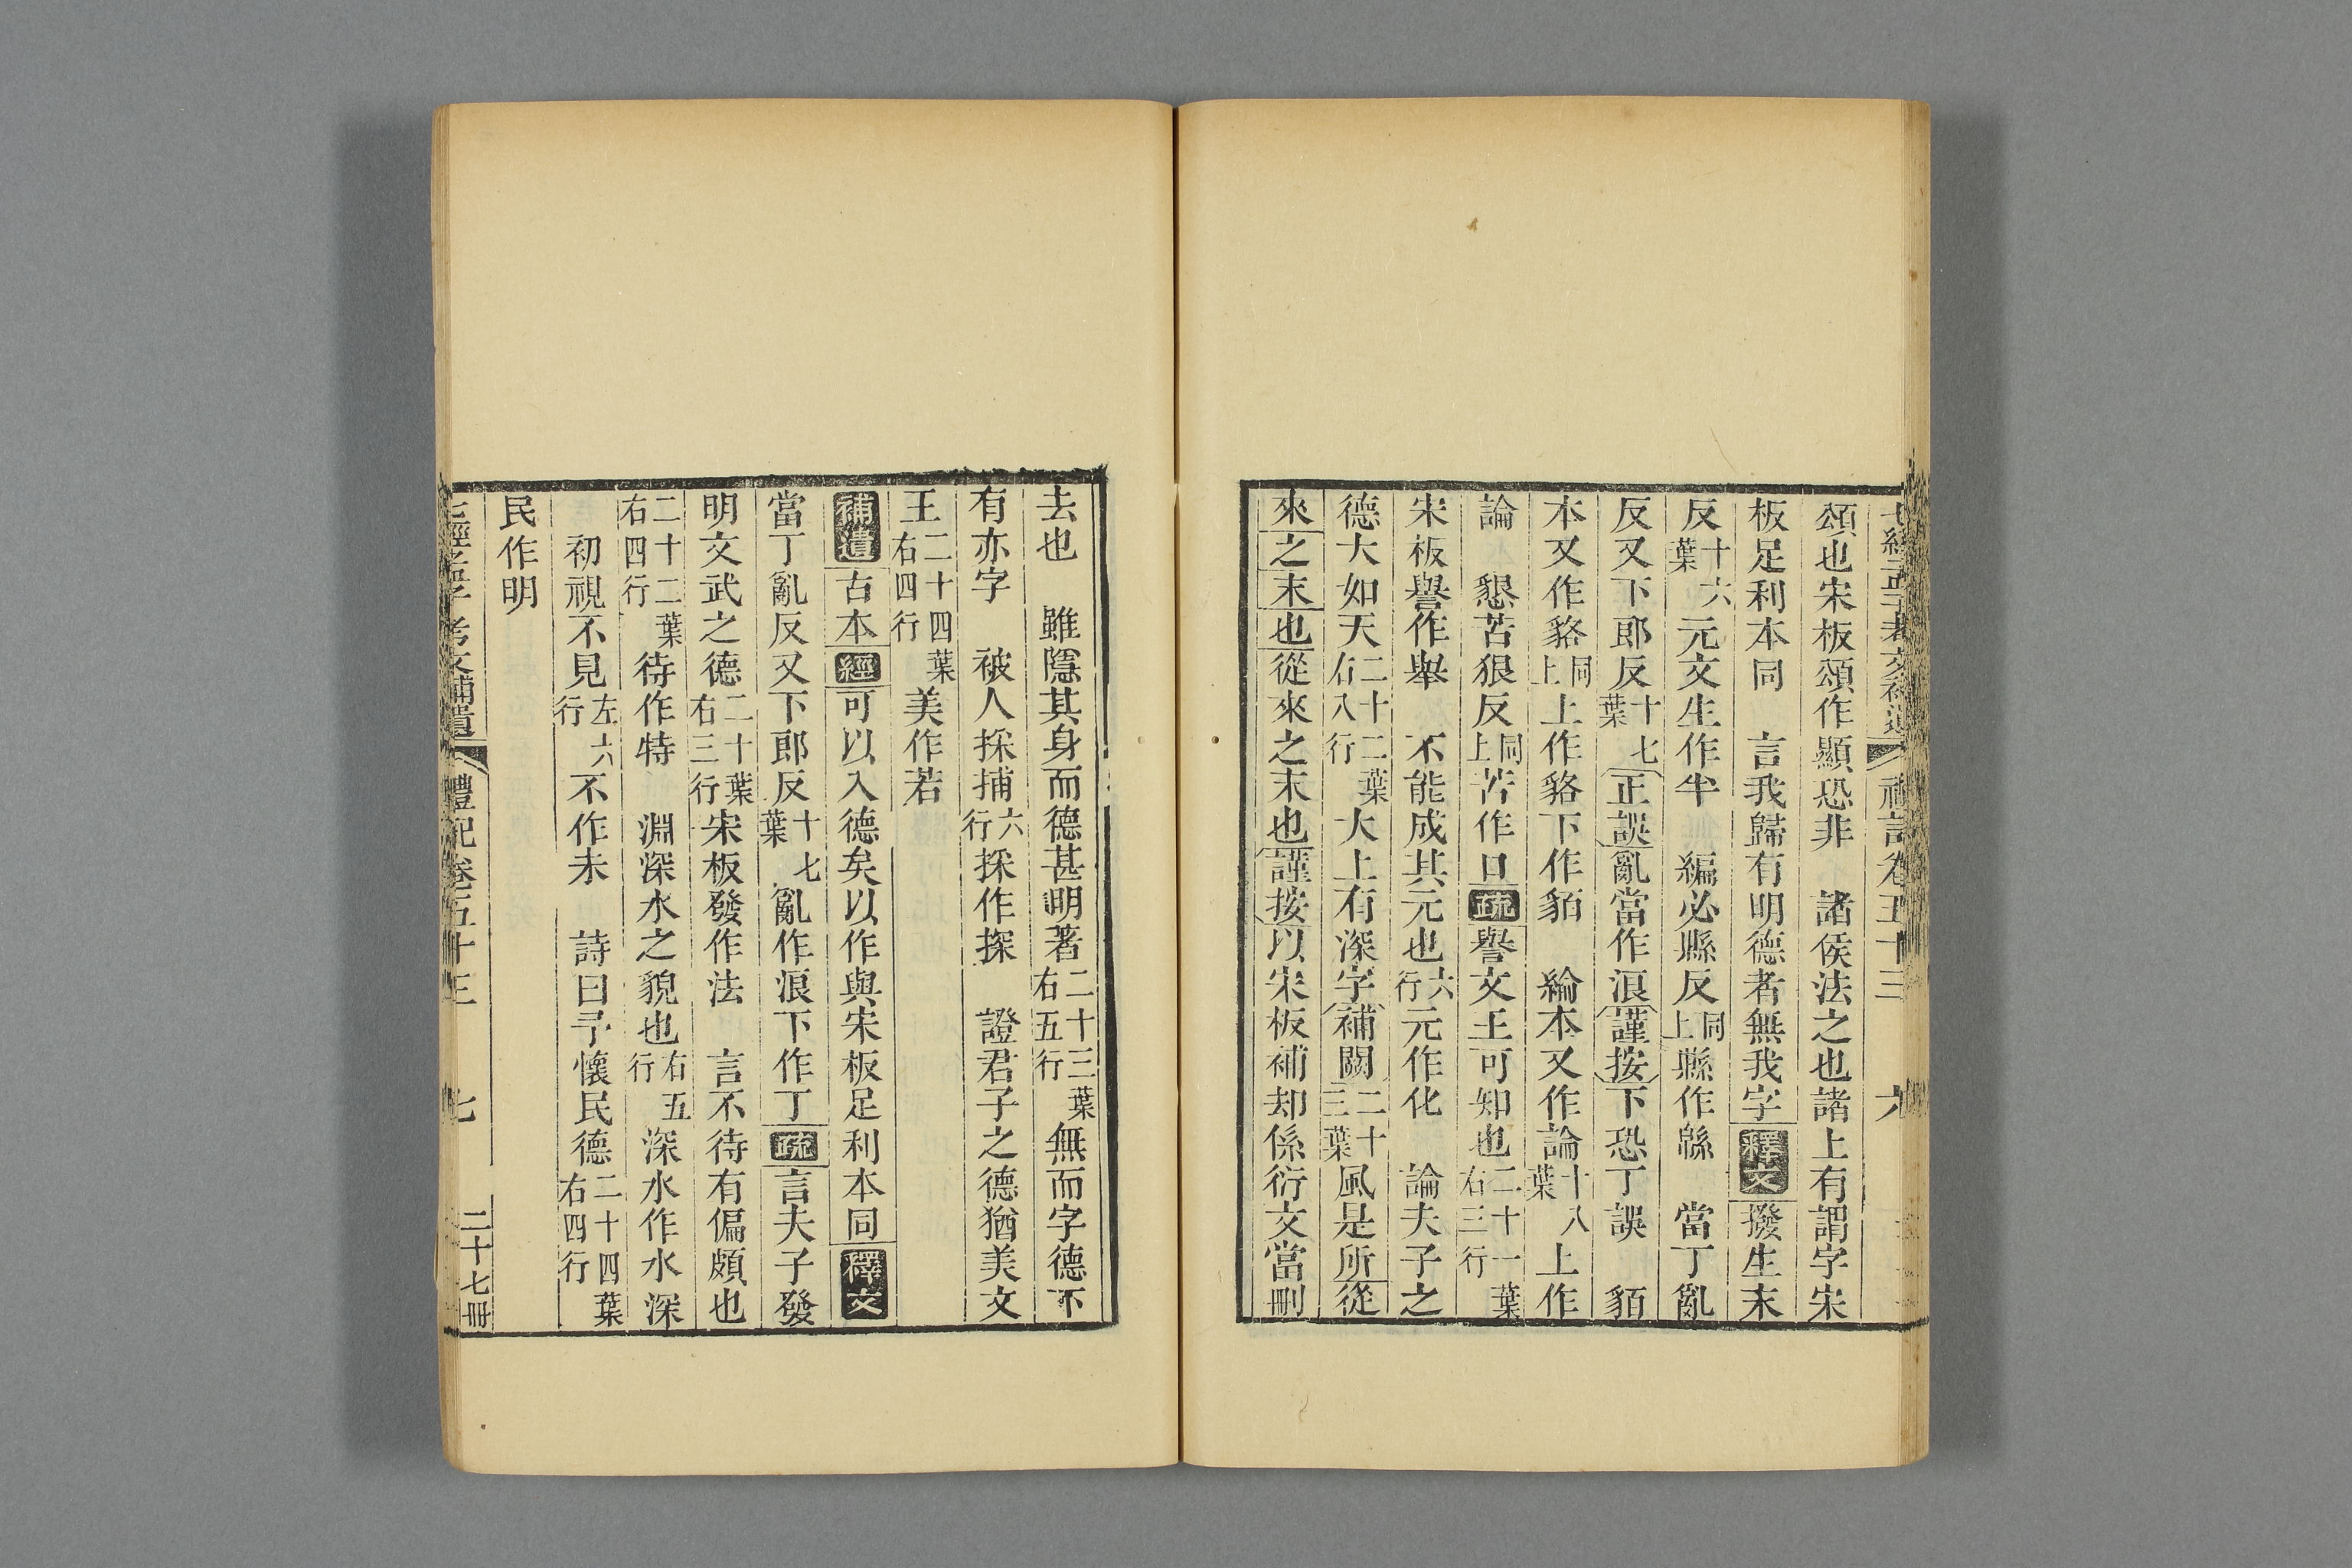 七經孟子考文補遺 禮記卷五十三 六
頌也宋板頌作顯恐非 諸侯法之也諸上有謂字宋
板足利本同 言我歸有明德者無我字釋文撥生末
反十六葉元文生作半 編必縣反同上縣作緜 當丁亂
反又下郎反十七葉正誤亂當作浪謹按下恐丁誤 貊
本又作貉同上上作貉下作貊 綸本又作論十八葉上作
論 懇苦狠反同上苦作口疏譽文王可知也二十一葉右三行
宋板譽作舉 不能成其元也六行元作化 論夫子之
德大如天二十二葉右八行大上有深字補闕二十三葉風是所從
來之末也從來之末也謹按以宋板補却係衍文當刪
去也 雖隱其身而德甚明著二十三葉右五行無而字德下
有亦字 被人採捕六行採作探 證君子之德猶美文
王二十四葉右四行美作若
補遺古本經可以入德矣以作與宋板足利本同釋文
當丁亂反又下郎反十七葉亂作浪下作丁疏言夫子發
明文武之德二十葉右三行宋板發作法 言不待有偏頗也
二十二葉右四行待作特 淵深水之貌也右五行深水作水深
初視不見左六行不作未 詩曰予懷民德二十四葉右四行
民作明
七經孟子考文補遺 禮記卷五十三 七 二十七冊